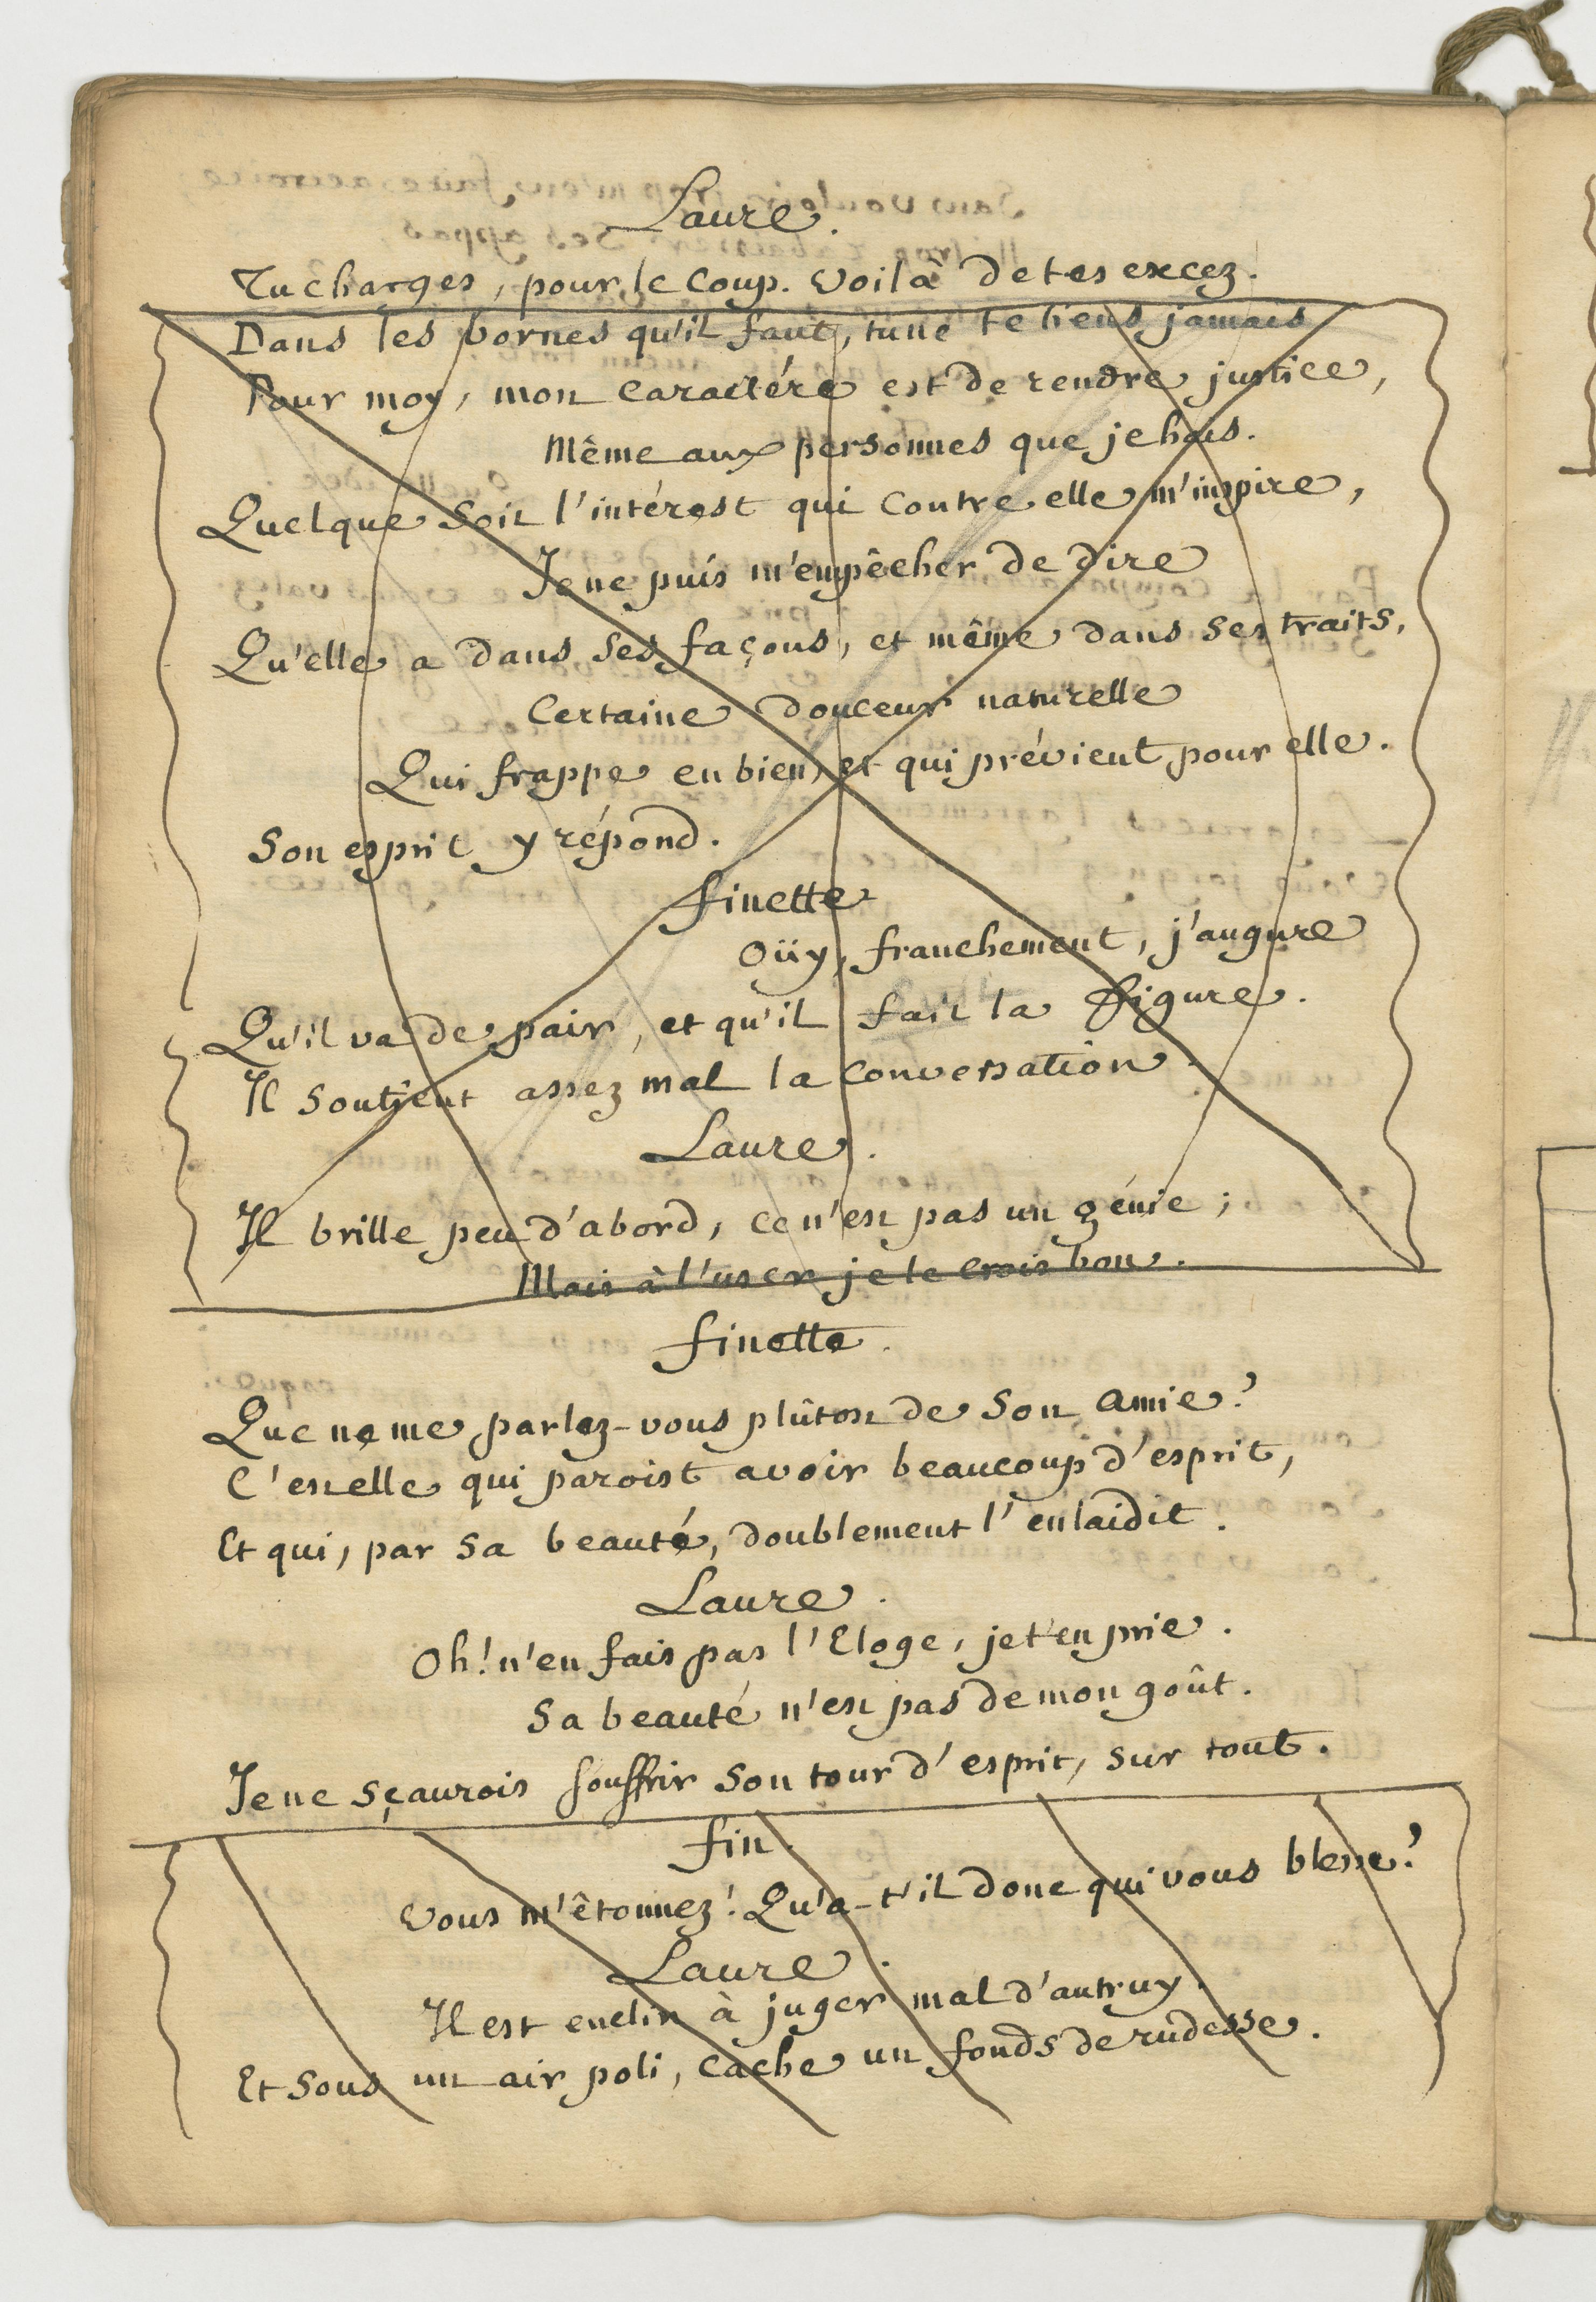 Laure.
Tu charges, pour le coup. Voilà de tes excez.
Dans les bornes qu'il faut, tu ne te tiens jamais
Pour moy, mon caractére est de rendre justice,
Même aux personnes que je hais.
Quelque soit l'intérest qui contre elle m'inspire,
Je ne puis m'empêcher de dire
Qu'elle a dans ses façons, et même dans ses traits,
Certaine douceur naturelle
Qui frappe en bien, et qui prévient pour elle.
Son esprit y répond.
finette
Oüy, franchement, j'augure
Qu'il va de pair, et qu'il fait la figure.
Il soutient assez mal la conversation.
Laure.
Il brille peu d'abord, ce n'est pas un génie;
Mais à l'user je le crois bon.
finette.
Que ne me parlez-vous plûtost de son amie?
C'est elle qui paroist avoir beaucoup d'esprit,
Et qui, par sa beauté, doublement l'enlaidit.
Laure.
Oh! n'en fais pas l'Eloge, je t'en prie.
Sa beauté n'est pas de mon goût.
Je ne sçaurois souffrir son tour d'esprit, sur tout.
fin.
Vous m'êtonnez! Qu'a-t'il donc qui vous blesse?
Laure.
Il est enclin à juger mal d'autruy.
Et sous un air poli, cache un fonds de rudesse.